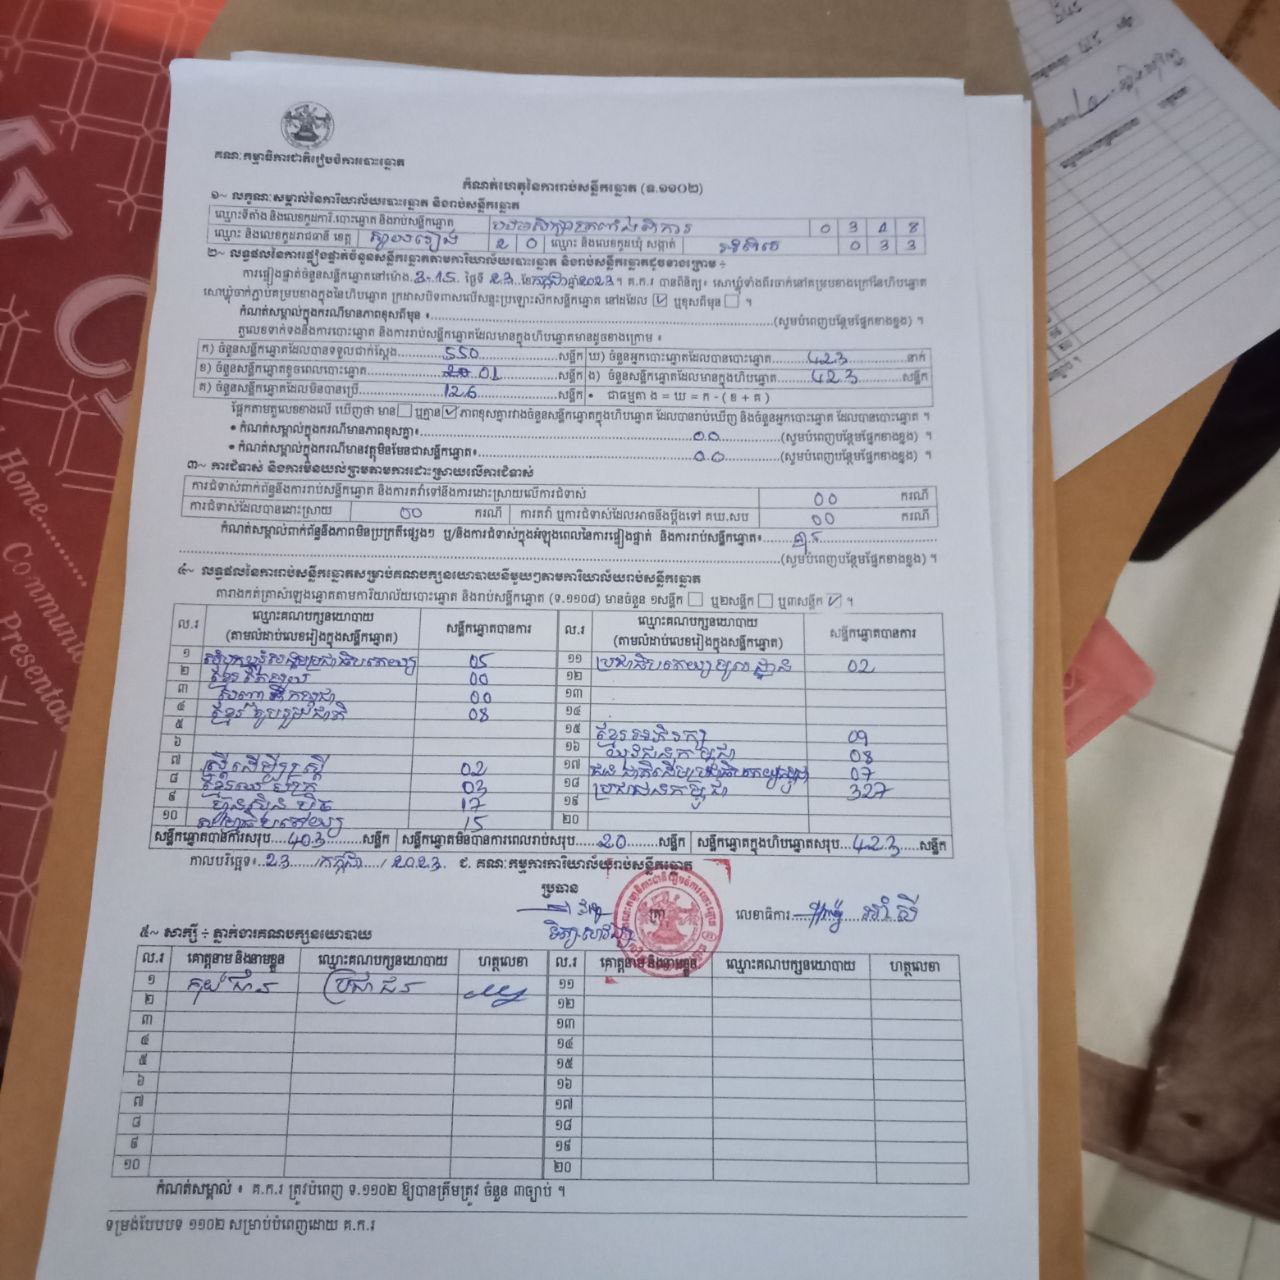 គណៈកម្មាធិការជាតិរៀបចំការបោះឆ្នោត
កំណត់ហេតុនៃការរាប់សន្លឹកឆ្នោត (ទ.១១០២)
១~ លក្ខណៈសម្គាល់នៃការិយាល័យបោះឆ្នោត និងរាប់សន្លឹកឆ្នោត
ឈ្មោះទីតាំង និងលេខកូដការិ.បោះឆ្នោត និងរាប់សន្លឹកឆ្នោត
ឈ្មោះ និងលេខកូដរាជធានី ខេត្ត ស្វាយរៀង 2 0 ឈ្មោះ និងលេខកូដឃុំ សង្កាត់ 0 3 3
២~ លទ្ធផលនៃការផ្ទៀងផ្ទាត់ចំនួនសន្លឹកឆ្នោតតាមការិយាល័យបោះឆ្នោត និងរាប់សន្លឹកឆ្នោតដូចខាងក្រោម ៖
ការផ្ទៀងផ្ទាត់ចំនួនសន្លឹកឆ្នោតនៅម៉ោង.3-15. ថ្ងៃទី 23 ខែកក្កដាឆ្នាំ2023។ គ.ក.រ បានពិនិត្យ៖ សោឃ្លុំទាំងពីរចាក់នៅគម្របខាងក្រៅនៃហិបឆ្នោត
សោឃ្លុំចាក់ភ្ជាប់គម្របខាងក្នុងនៃហិបឆ្នោត ក្រដាសបិទពាសលើសន្ទះប្រឡោះសឹកសន្លឹកឆ្នោត នៅដដែល ☑ ឬខុសពីមុន ☐ ។
កំណត់សម្គាល់ក្នុងករណីមានភាពខុសពីមុន ៖ (សូមបំពេញបន្ថែមផ្នែកខាងខ្នង) ។
តួលេខទាក់ទងនឹងការបោះឆ្នោត និងការរាប់សន្លឹកឆ្នោតដែលមានក្នុងហិបឆ្នោតមានដូចខាងក្រោម ៖
ក) ចំនួនសន្លឹកឆ្នោតដែលបានទទួលជាក់ស្តែង 550 សន្លឹក ឃ) ចំនួនអ្នកបោះឆ្នោតដែលបានបោះឆ្នោត 423 នាក់
ខ) ចំនួនសន្លឹកឆ្នោតខូចពេលបោះឆ្នោត 01 សន្លឹក ង) ចំនួនសន្លឹកឆ្នោតដែលមានក្នុងហិបឆ្នោត 423 សន្លឹក
គ) ចំនួនសន្លឹកឆ្នោតដែលមិនបានប្រើ 126 សន្លឹក • ជាធម្មតា ង = ឃ = ក - ( ខ + គ )
ផ្អែកតាមតួលេខខាងលើ ឃើញថា មាន ☐ ឬគ្មាន ☑ ភាពខុសគ្នារវាងចំនួនសន្លឹកឆ្នោតក្នុងហិបឆ្នោត ដែលបានរាប់ឃើញ និងចំនួនអ្នកបោះឆ្នោត ដែលបានបោះឆ្នោត ។
• កំណត់សម្គាល់ក្នុងករណីមានភាពខុសគ្នា៖ 00 (សូមបំពេញបន្ថែមផ្នែកខាងខ្នង) ។
• កំណត់សម្គាល់ក្នុងករណីមានវត្ថុមិនមែនជាសន្លឹកឆ្នោត៖ 00 (សូមបំពេញបន្ថែមផ្នែកខាងខ្នង) ។
៣~ ការជំទាស់ និងការមិនយល់ព្រមតាមការដោះស្រាយលើការជំទាស់
ការជំទាស់ពាក់ព័ន្ធនឹងការរាប់សន្លឹកឆ្នោត និងការតវ៉ាទៅនឹងការដោះស្រាយលើការជំទាស់ 00 ករណី
ការជំទាស់ដែលបានដោះស្រាយ 00 ករណី ការតវ៉ា ឬការជំទាស់ដែលអាចនឹងប្តឹងទៅ គឃ.សប 00 ករណី
កំណត់សម្គាល់ពាក់ព័ន្ធនឹងភាពមិនប្រក្រតីផ្សេងៗ ឬ/និងការជំទាស់ក្នុងអំឡុងពេលនៃការផ្ទៀងផ្ទាត់ និងការរាប់សន្លឹកឆ្នោត៖
(សូមបំពេញបន្ថែមផ្នែកខាងខ្នង) ។
៤~ លទ្ធផលនៃការរាប់សន្លឹកឆ្នោតសម្រាប់គណបក្សនយោបាយនីមួយៗតាមការិយាល័យរាប់សន្លឹកឆ្នោត
តារាងកត់ត្រាសំឡេងឆ្នោតតាមការិយាល័យបោះឆ្នោត និងរាប់សន្លឹកឆ្នោត (ទ.១១០៨) មានចំនួន ១សន្លឹក ☐ ឬ២សន្លឹក ☐ ឬ៣សន្លឹក ☑ ។
ល.រ ឈ្មោះគណបក្សនយោបាយ (តាមលំដាប់លេខរៀងក្នុងសន្លឹកឆ្នោត) សន្លឹកឆ្នោតបានការ ល.រ ឈ្មោះគណបក្សនយោបាយ (តាមលំដាប់លេខរៀងក្នុងសន្លឹកឆ្នោត) សន្លឹកឆ្នោតបានការ
១ សំបុកឃ្មុំសង្គមប្រជាធិបតេយ្យ 05 ១១ ប្រជាធិបតេយ្យមូលដ្ឋាន 02
២ 00 ១២
៣ 00 ១៣
៤ ខ្មែររួបរួមជាតិ 08 ១៤
៥ ១៥ ខ្មែរអភិរក្ស 09
៦ ១៦ យុវជនកម្ពុជា 08
៧ ស្ត្រីដើម្បីស្ត្រី 02 ១៧ 07
៨ 03 ១៨ ប្រជាជនកម្ពុជា 327
៩ ហ៊្វុនស៊ិនប៉ិច 17 ១៩
១០ 15 ២០
សន្លឹកឆ្នោតបានការសរុប 403 សន្លឹក សន្លឹកឆ្នោតមិនបានការពេលរាប់សរុប 20 សន្លឹក សន្លឹកឆ្នោតក្នុងហិបឆ្នោតសរុប 423 សន្លឹក
កាលបរិច្ឆេទ៖ 23 /កក្កដា/ 2023 ជ. គណៈកម្មការការិយាល័យរាប់សន្លឹកឆ្នោត
ប្រធាន
លេខាធិការ
៥~ សាក្សី ៖ ភ្នាក់ងារគណបក្សនយោបាយ
ល.រ គោត្តនាម និងនាមខ្លួន ឈ្មោះគណបក្សនយោបាយ ហត្ថលេខា ល.រ គោត្តនាម និងនាមខ្លួន ឈ្មោះគណបក្សនយោបាយ ហត្ថលេខា
១ ប្រជាជន ១១
២ ១២
៣ ១៣
៤ ១៤
៥ ១៥
៦ ១៦
៧ ១៧
៨ ១៨
៩ ១៩
១០ ២០
កំណត់សម្គាល់ ៖ គ.ក.រ ត្រូវបំពេញ ទ.១១០២ ឱ្យបានត្រឹមត្រូវ ចំនួន ៣ច្បាប់ ។
ទម្រង់បែបបទ ១១០២ សម្រាប់បំពេញដោយ គ.ក.រ